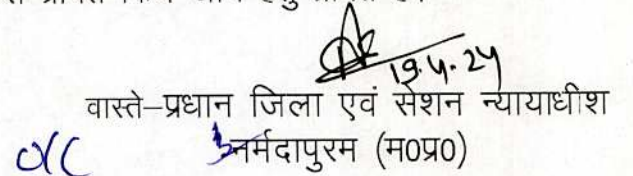 19.4.24
वास्ते–प्रधान जिला एवं सेशन न्यायाधीश
नर्मदापुरम (म0प्र0)